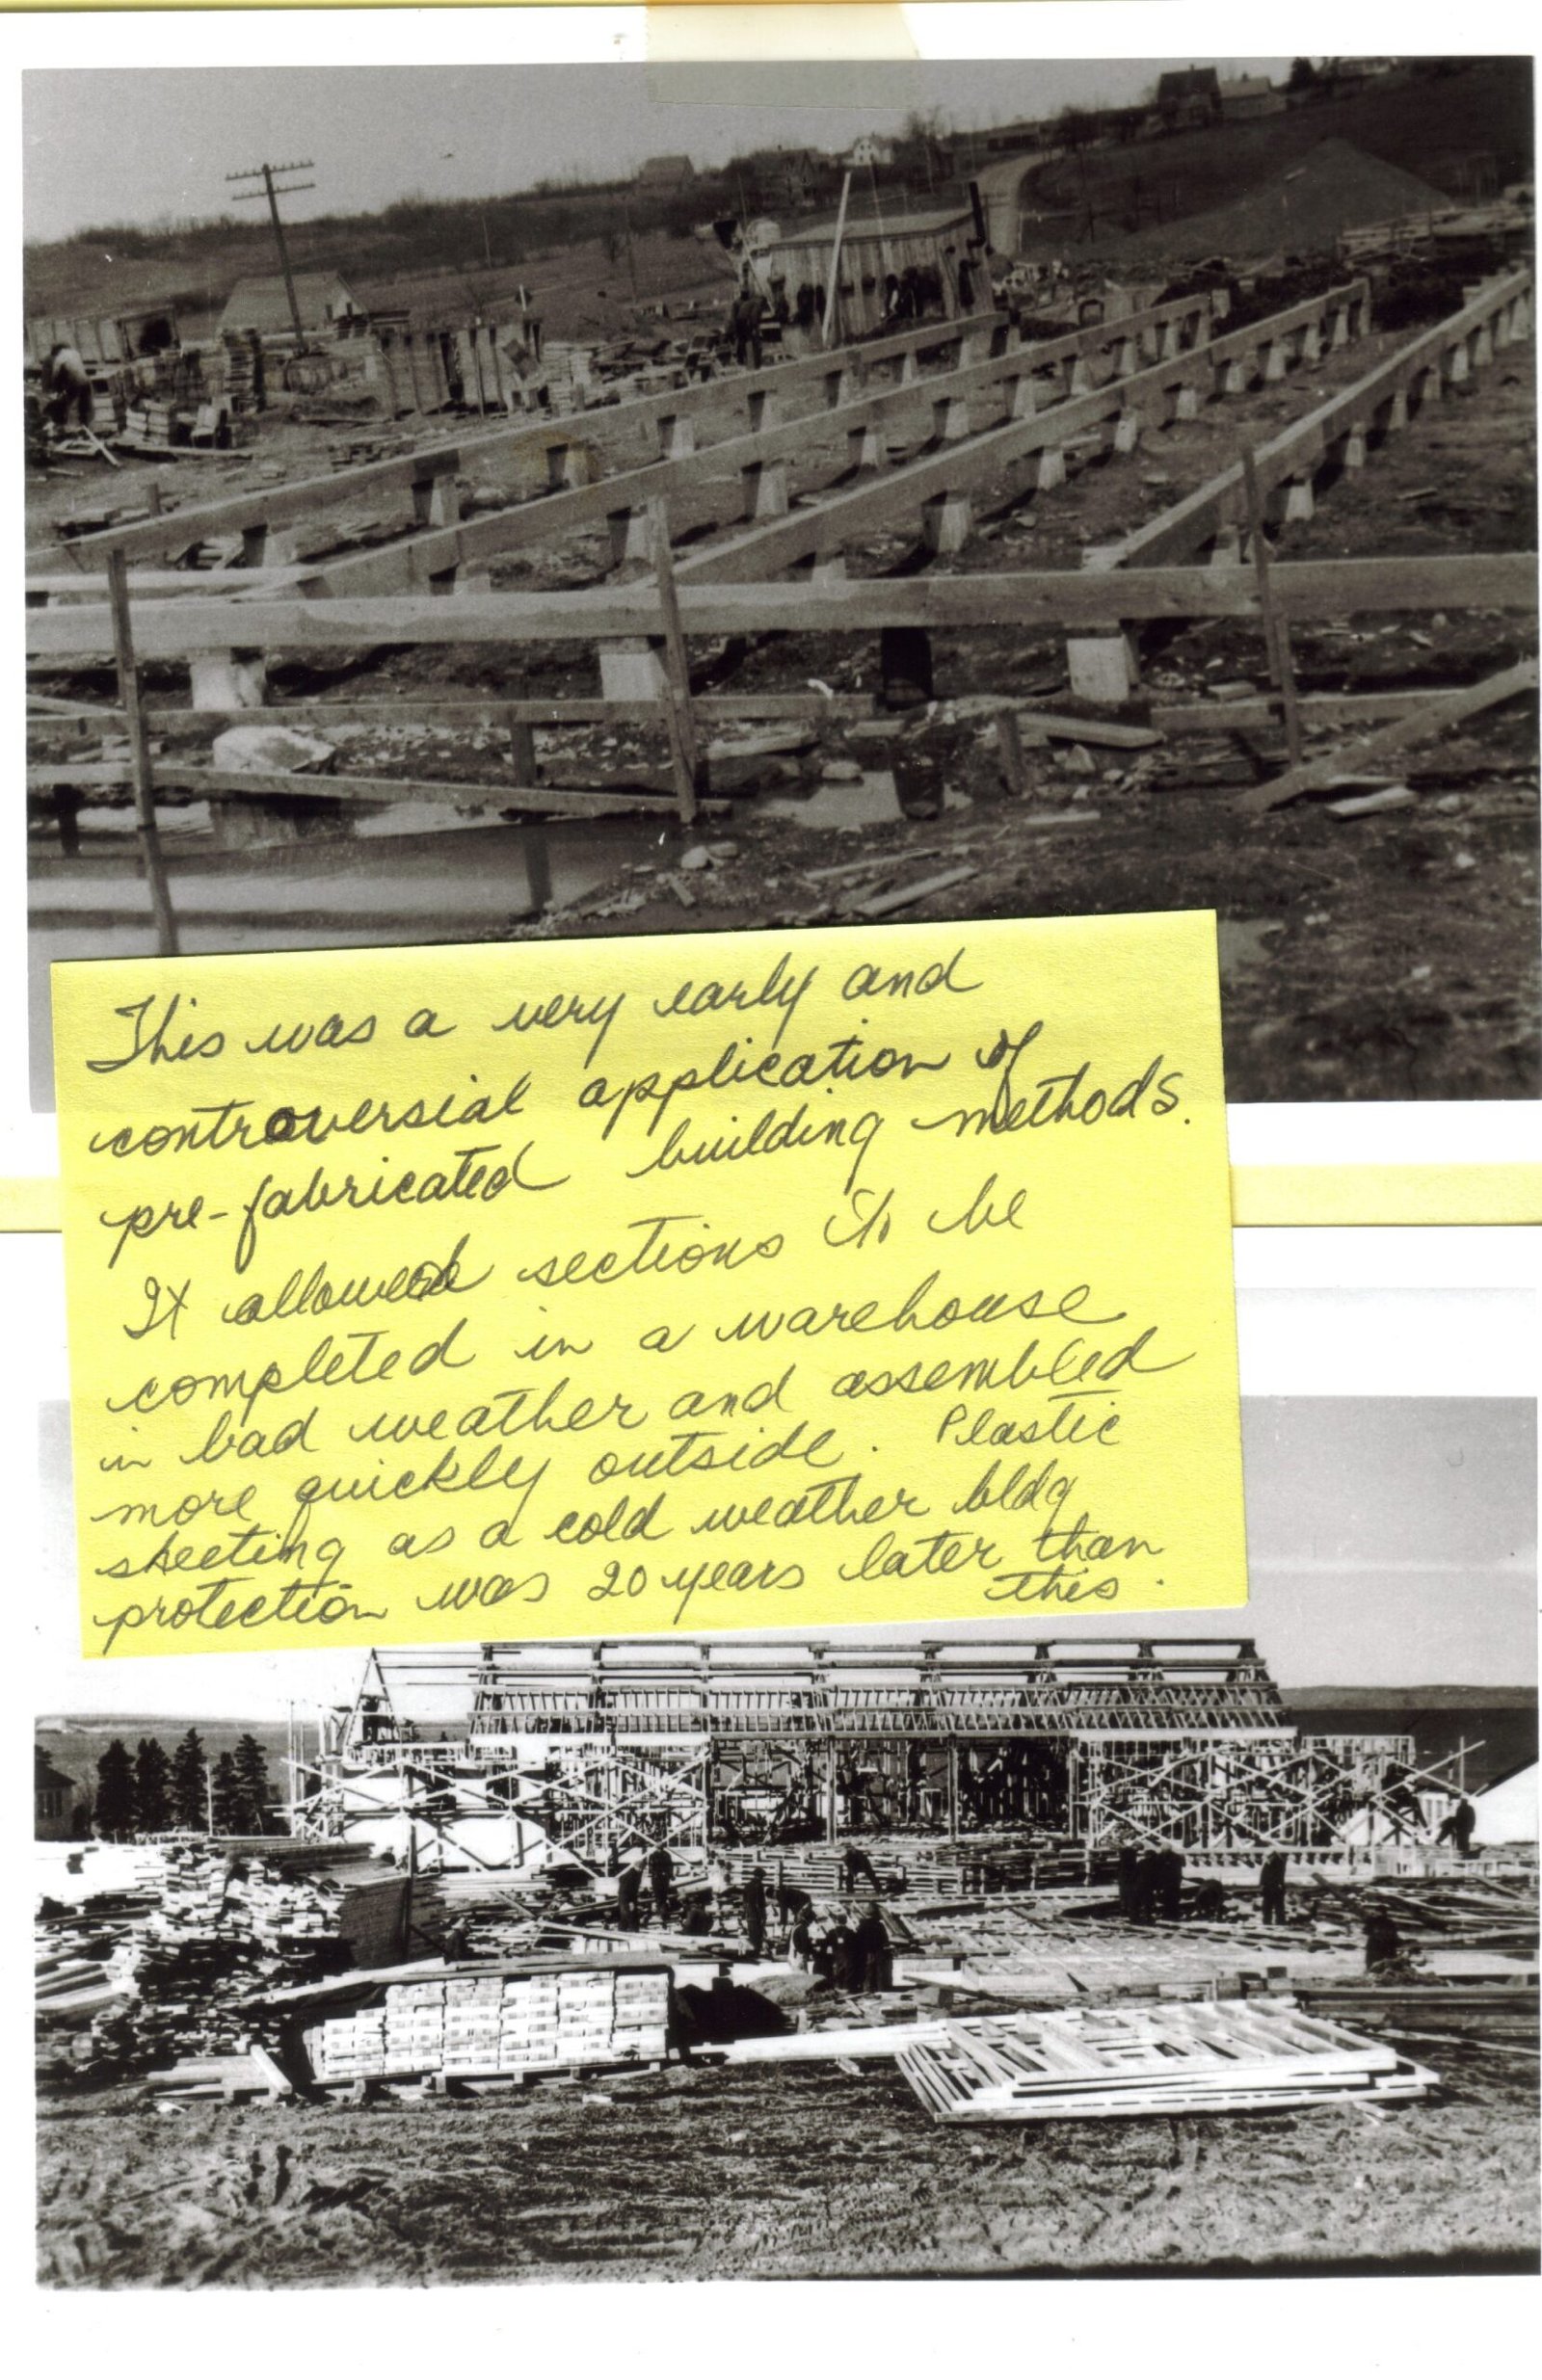 This was a very early and
controversial application of
pre-fabricated building methods.
It allowed sections to be
completed in a warehouse
in bad weather and assembled
more quickly outside. Plastic
sheeting as a cold weather bldg
protection was 20 years later than
this.